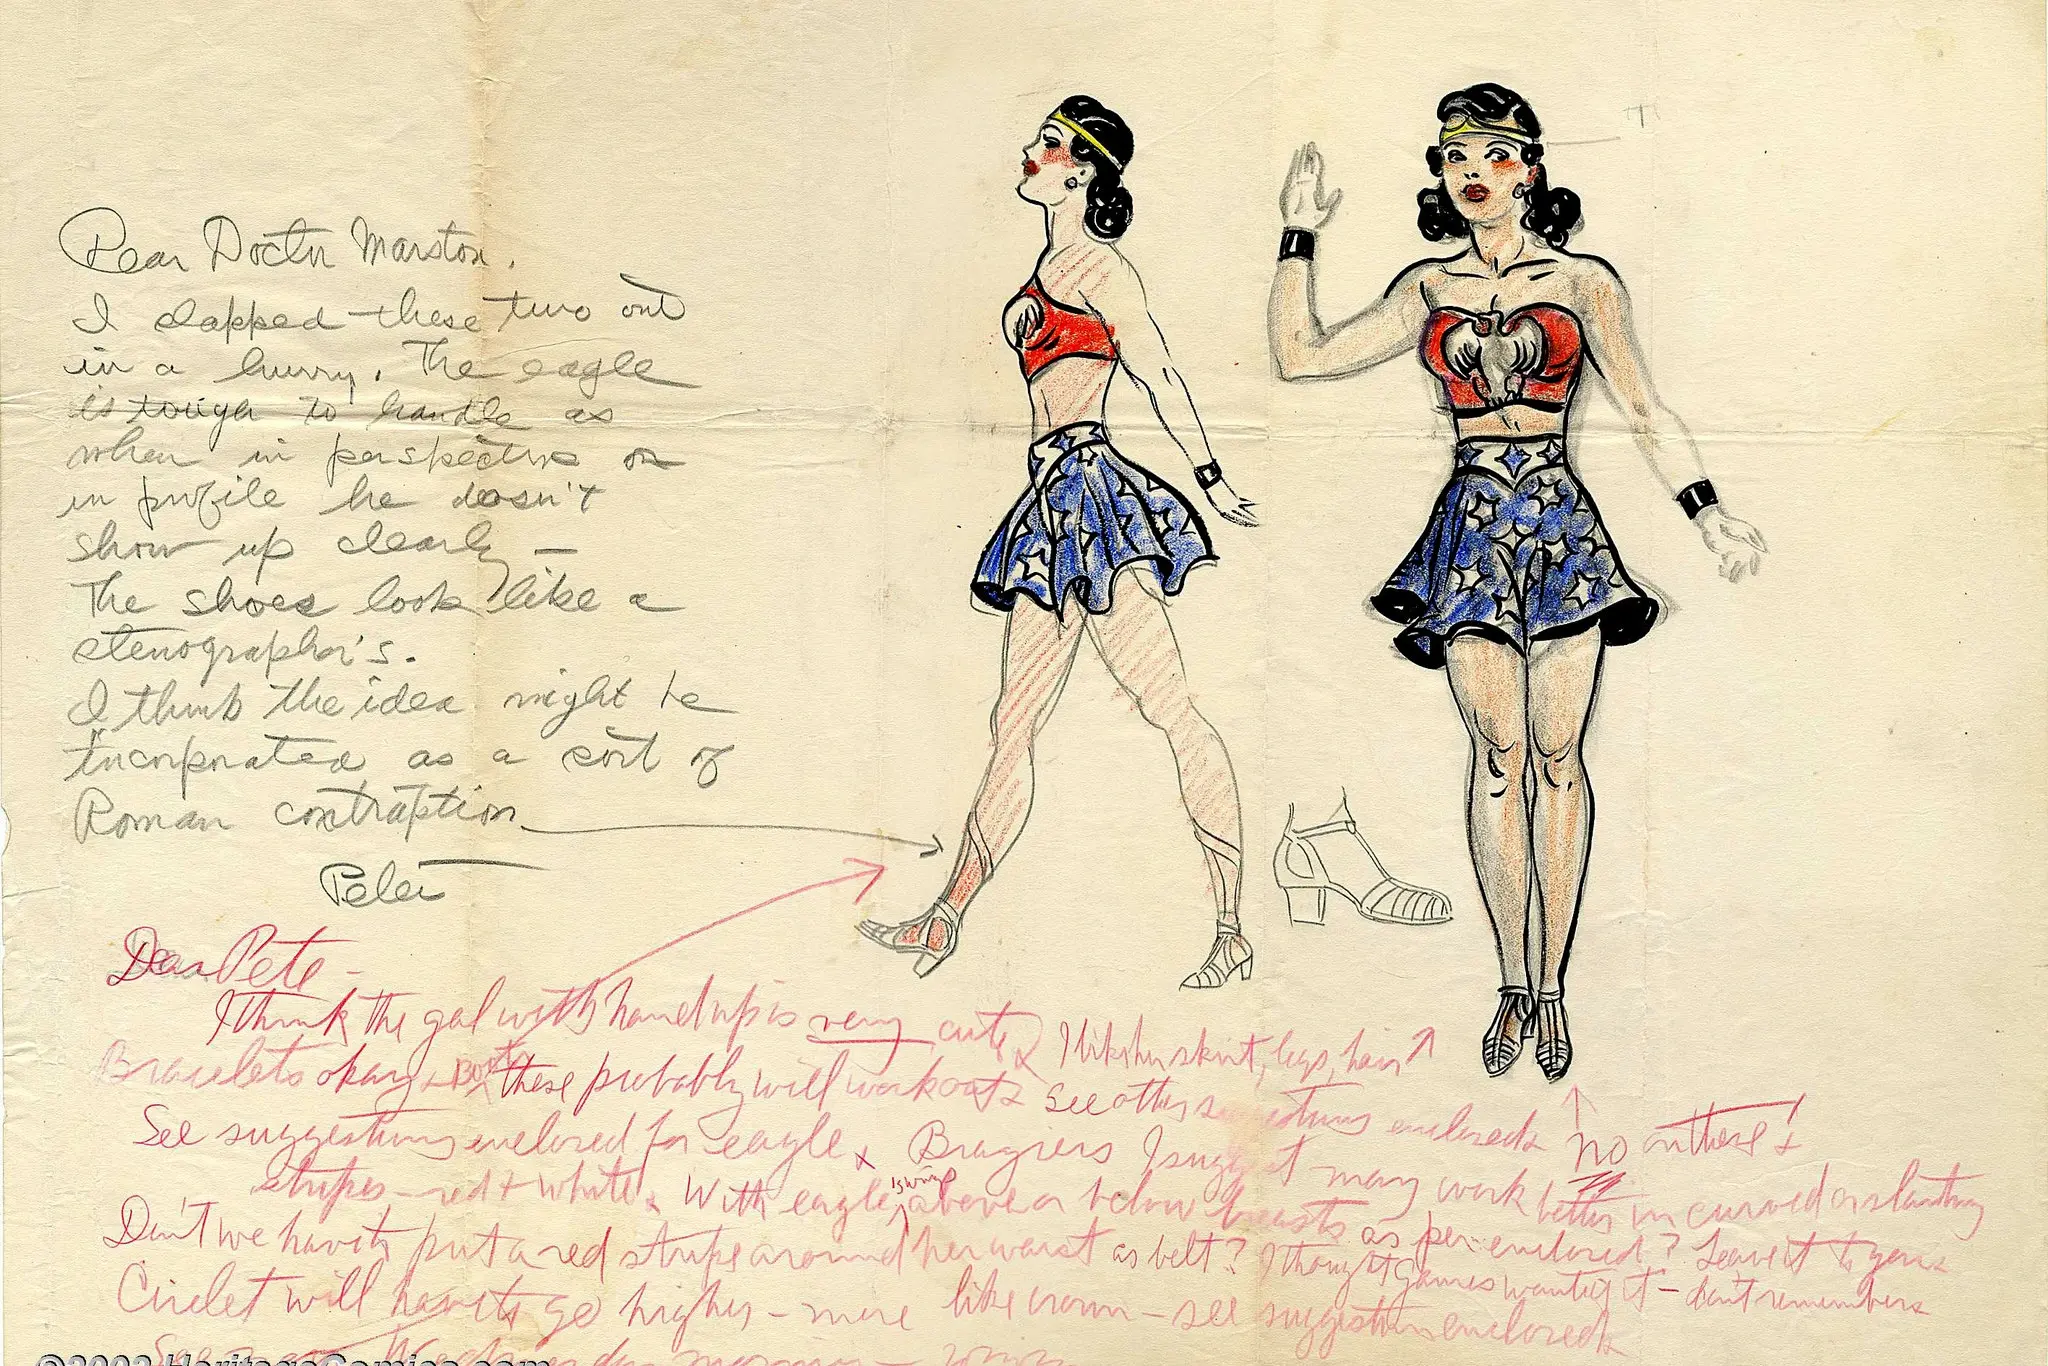 Dear Doctor Marston,
I slapped these two out
in a hurry. The eagle
is tough to handle as
when in perspective or
in profile he doesn't
show up clearly —
The shoes look like a
stenographer's.
I think the idea might be
incorporated as a sort of
Roman contraption
Peter
Dear Pete —
I think the gal with hand up is very cute. I like her skirt, legs, hair
Bracelets okay + boots these probably will work out. See other suggestions enclosed. No on these!
See suggestions enclosed for eagle. Brassiere I suggest may work better in curved or slanting
stripes — red + white. With eagle's wings above or below breasts as per enclosed? Leave it to you.
Don't we have to put a red stripe around her waist as belt? I thought Gaines wanted it — don't remember.
Circlet will have to go higher — more like crown — see suggestions enclosed.
©2002 HeritageComics.com